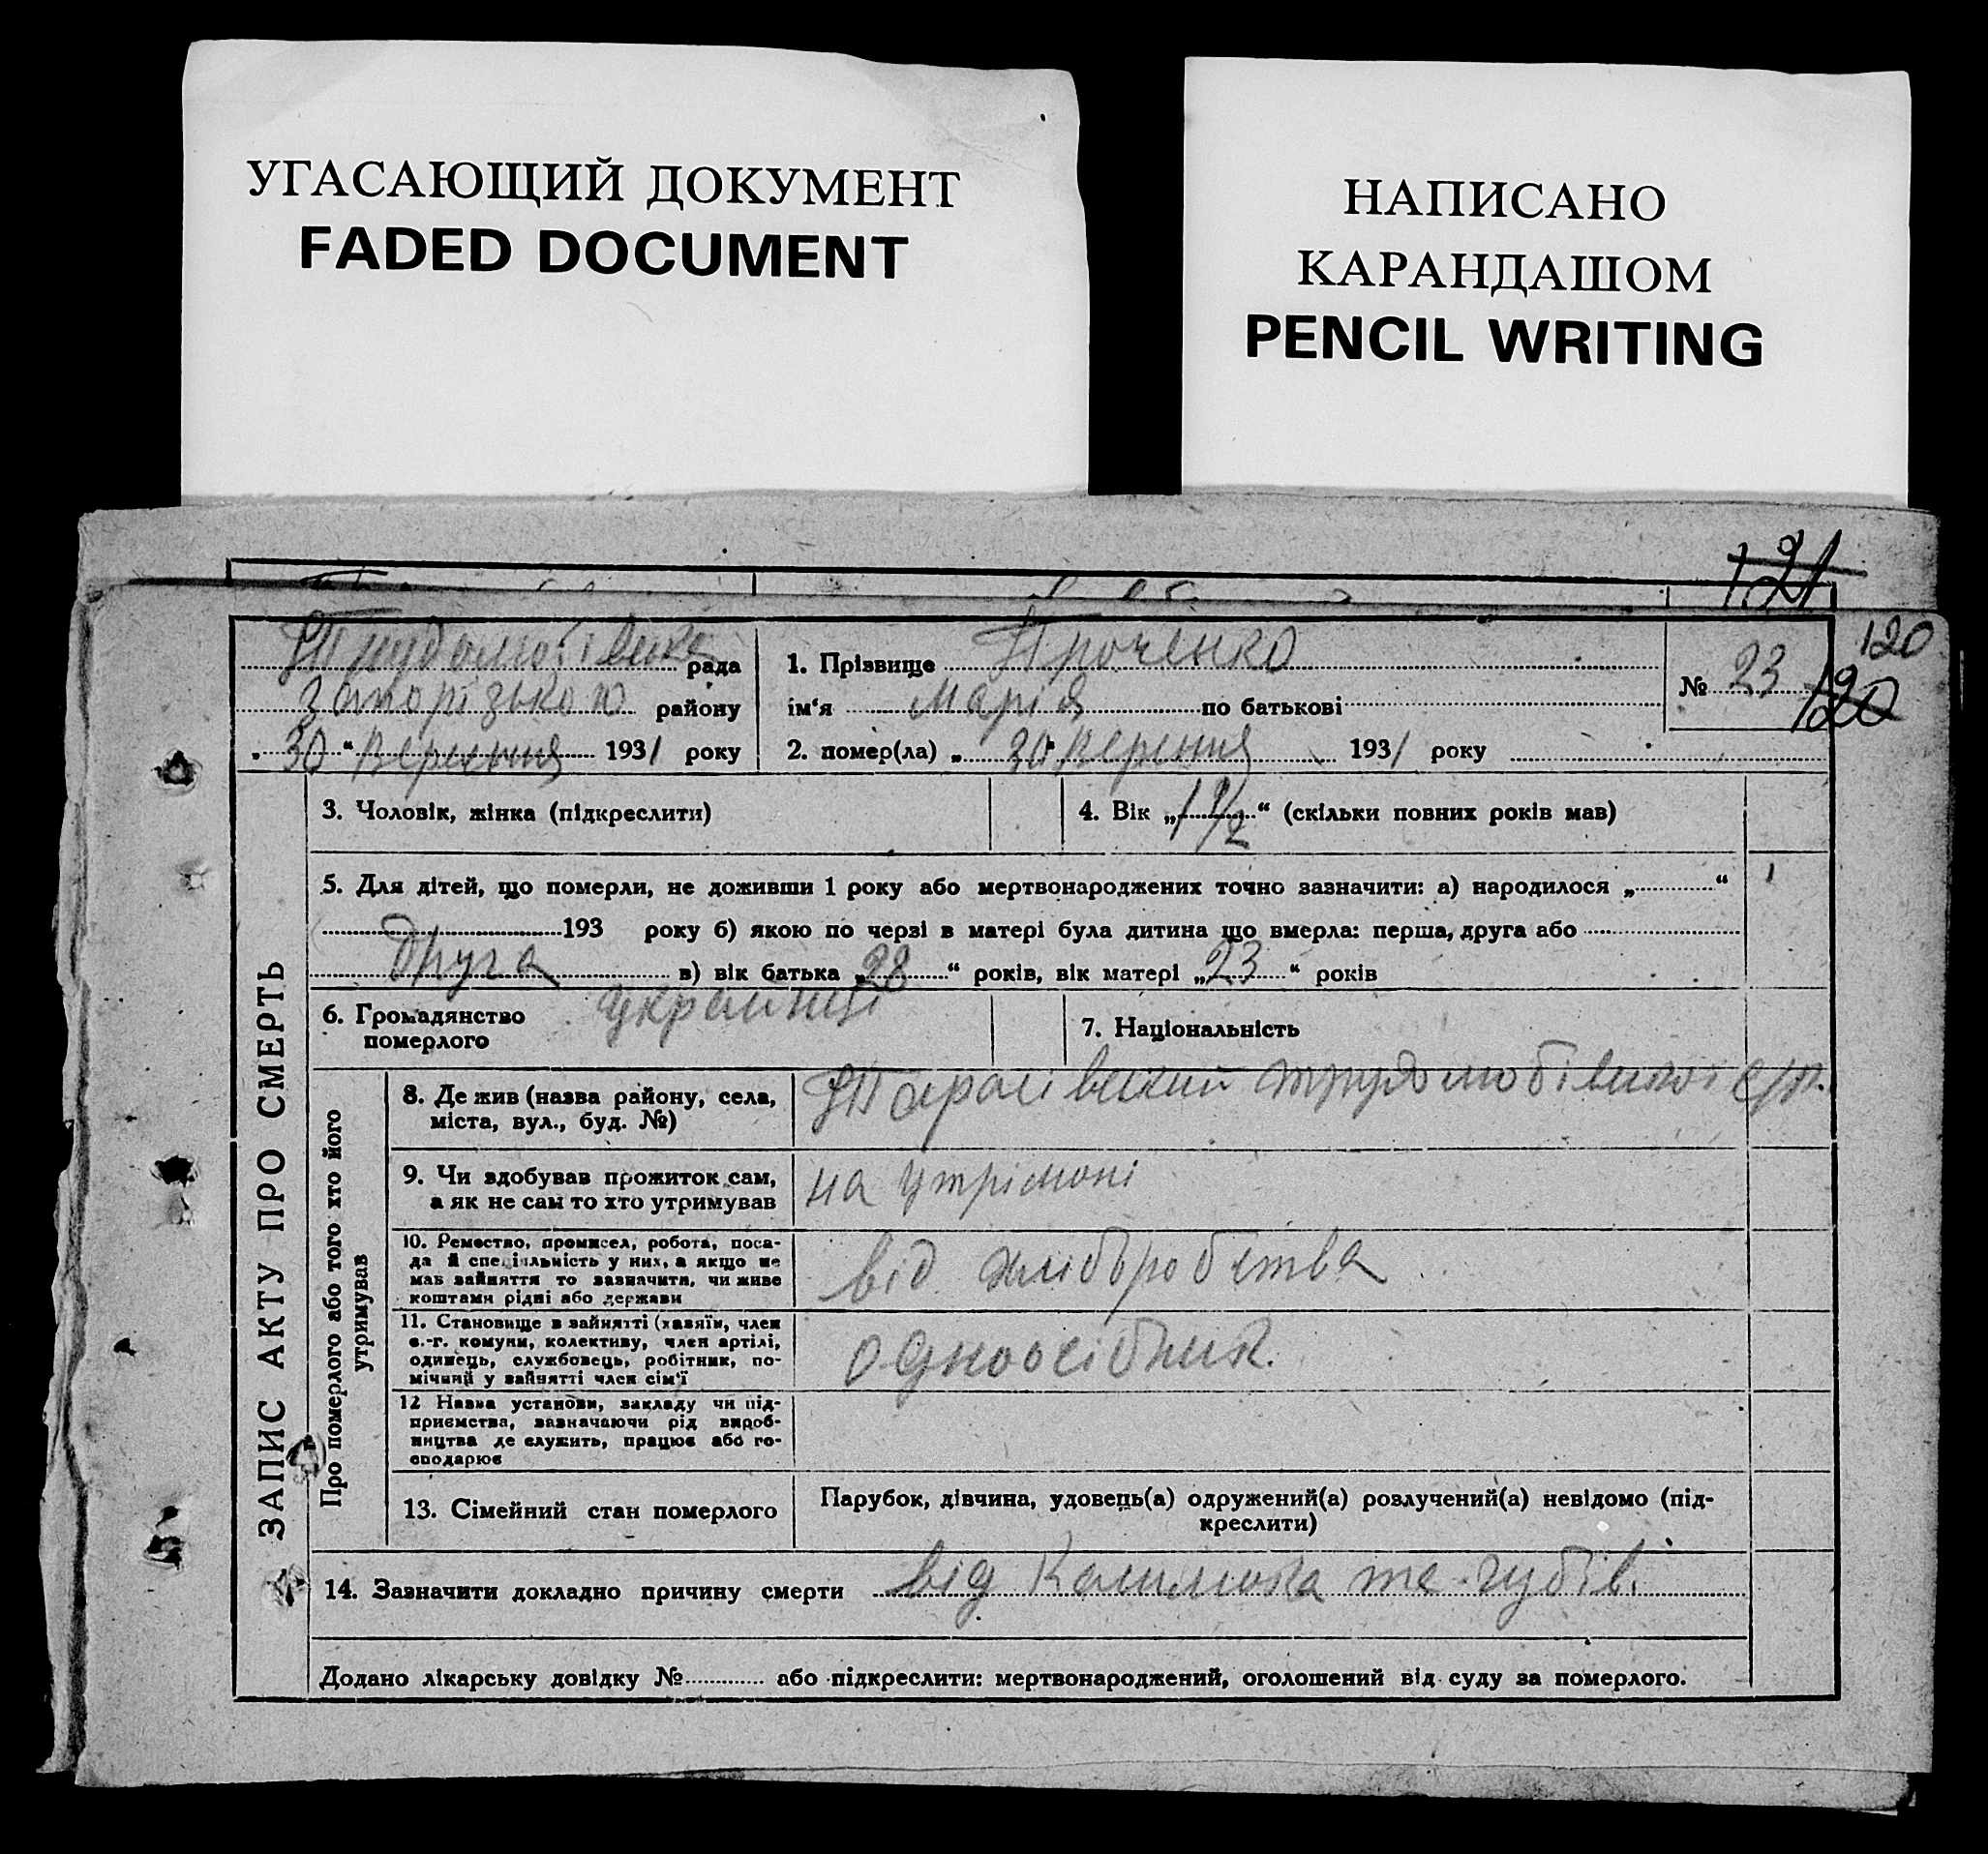 УГАСАЮЩИЙ ДОКУМЕНТ
FADED DOCUMENT
НАПИСАНО
КАРАНДАШОМ
PENCIL WRITING
121
120
120
рада
Запорізького району
„30“ Вересня 1931 року
1. Прізвище Проченко
ім'я Марія по батькові
2. помер(ла) „30 Вересня 1931 року
№ 23
ЗАПИС АКТУ ПРО СМЕРТЬ
3. Чоловік, жінка (підкреслити)
4. Вік „1 1/2“ (скільки повних років мав)
5. Для дітей, що померли, не доживши 1 року або мертвонароджених точно зазначити: а) народилося „ “
193 року б) якою по черзі в матері була дитина що вмерла: перша, друга або
друга в) вік батька „28“ років, вік матері „23“ років
6. Громадянство померлого
українці
7. Національність
Про померлого або того хто його утримував
8. Де жив (назва району, села,
міста, вул., буд. №)
Тарасівський с/р.
9. Чи здобував прожиток сам,
а як не сам то хто утримував
на утрімані
10. Ремество, промисел, робота, поса-
да й спеціяльність у них, а якщо не
мав зайняття то зазначити, чи живе
коштами рідні або держави
від хлібробства
11. Становище в зайнятті (хазяїн, член
с.-г. комуни, колективу, член артілі,
одинець, службовець, робітник, по-
мічний у зайнятті член сім'ї
одноосібник.
12 Назва установи, закладу чи під-
приємства, зазначаючи рід вироб-
ництва де служить, працює або го-
сподарює
13. Сімейний стан померлого
Парубок, дівчина, удовець(а) одружений(а) розлучений(а) невідомо (під-
креслити)
14. Зазначити докладно причину смерти від те зубів.
Додано лікарську довідку № або підкреслити: мертвонароджений, оголошений від суду за померлого.